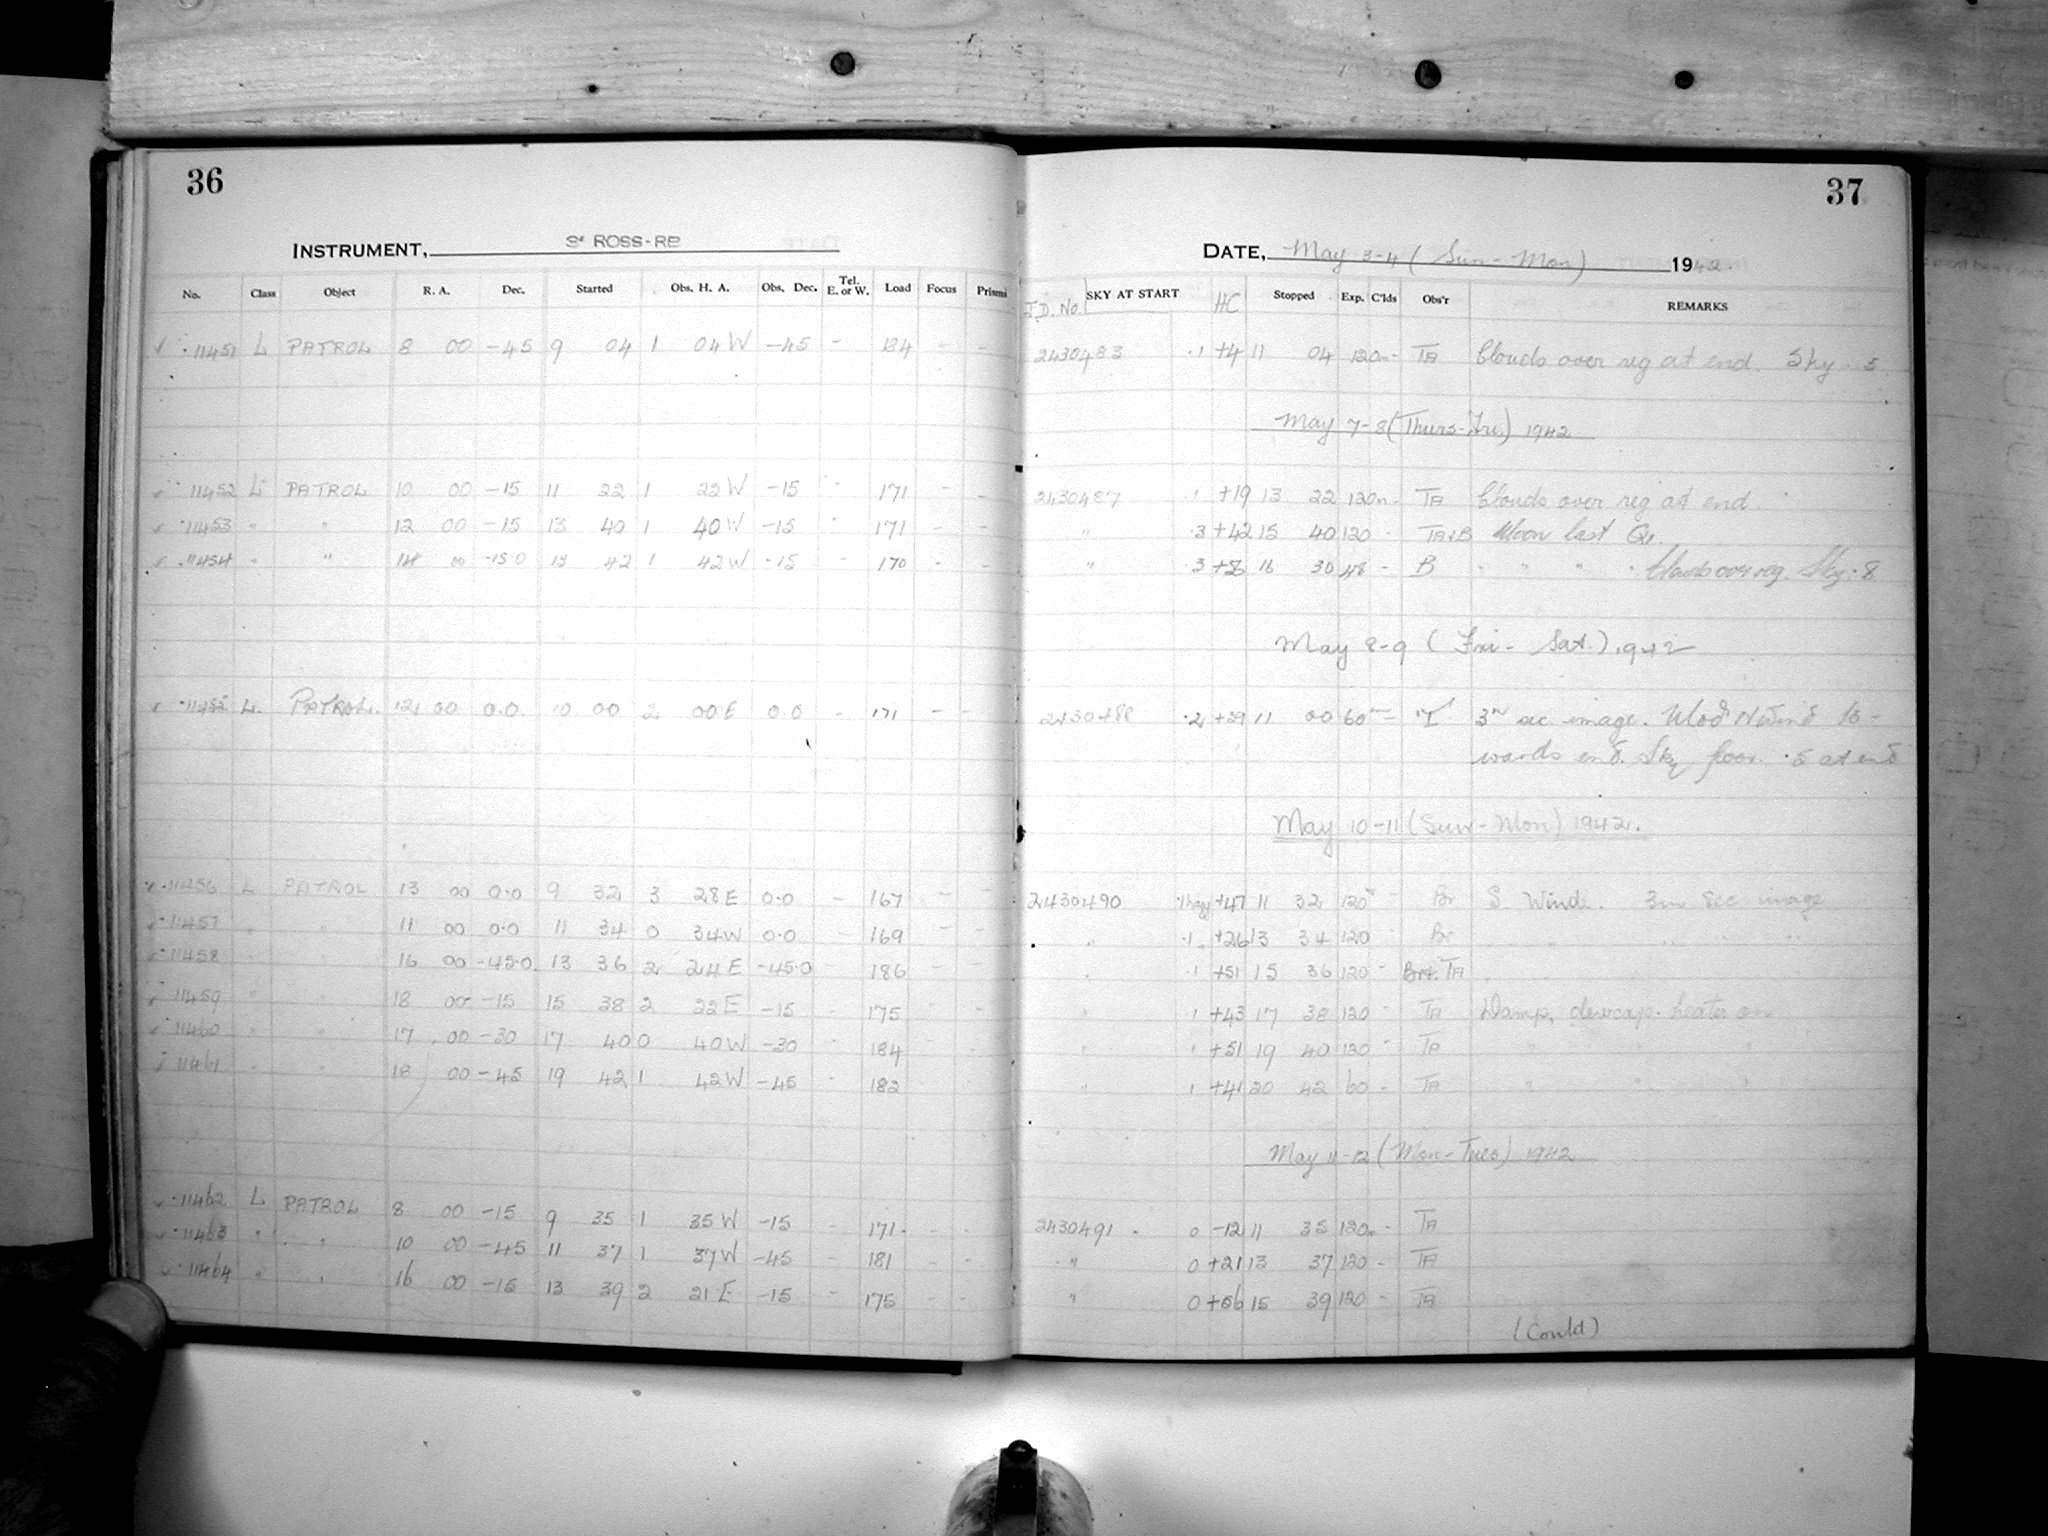 36
INSTRUMENT, 3" ROSS-RB
No. Class Object R. A. Dec. Started Obs. H. A. Obs. Dec. Tel. E. or W. Load Focus Prisms
11451 L PATROL 8 00 -45 9 04 1 04 W -45 - 184 - -
11452 L PATROL 10 00 -15 11 22 1 22 W -15 171 - -
11453 " " 12 00 -15 13 40 1 40 W -15 171 - -
11454 " " 14 00 -15.0 15 42 1 42 W -15 - 170 - -
11455 L. PATROL. 12 00 0.0 10 00 2 00 E 0.0 - 171 - -
11456 L PATROL 13 00 0.0 9 32 3 28 E 0.0 - 167 - -
11457 " " 11 00 0.0 11 34 0 34 W 0.0 - 169 - -
11458 " " 16 00 -45.0 13 36 2 24 E -45.0 - 186 - -
11459 " " 18 00 -15 15 38 2 22 E -15 - 175 - -
11460 " " 17 00 -30 17 40 0 40 W -30 - 184 - -
11461 " " 18 00 -45 19 42 1 42 W -45 - 182
11462 L PATROL 8 00 -15 9 35 1 35 W -15 - 171 - -
11463 " " 10 00 -45 11 37 1 37 W -45 181 - -
11464 " " 16 00 -15 13 39 2 21 E -15 - 175 - -
37
DATE, May 3-4 (Sun-Mon) 1942.
J.D. No. SKY AT START HC Stopped Exp. C'lds Obs'r REMARKS
2430483 .1 +4 11 04 120m - TA Clouds over reg at end. Sky .5
May 7-8 (Thurs-Fri) 1942
2430487 .1 +19 13 22 120m - TA Clouds over reg at end.
" .3 +42 15 40 120 - TA+B Moon last Qr.
" .3 16 30 48 - B " " " Clouds over reg. Sky .8
May 8-9 (Fri - Sat.) 1942
2430488 .2 +39 11 00 60m - 3m sec image. Mod N wind to-
wards end. Sky poor. .5 at end
May 10-11 (Sun-Mon) 1942.
2430490 .1hazy +47 11 32 120m - Br S. Wind. 3m sec image
" .1 +26 13 34 120 - Br " " " " "
" .1 +51 15 36 120 - TA
" .1 +43 17 38 120 - TA Damp, dewcap-heater on
" .1 +51 19 40 120 - TA " " "
" .1 +41 20 42 60 - TA " " "
May 11-12 (Mon-Tues) 1942
2430491 0 -12 11 35 120m - TA
" 0 +21 13 37 120 - TA
" 0 +56 15 39 120 - TA
(Contd)